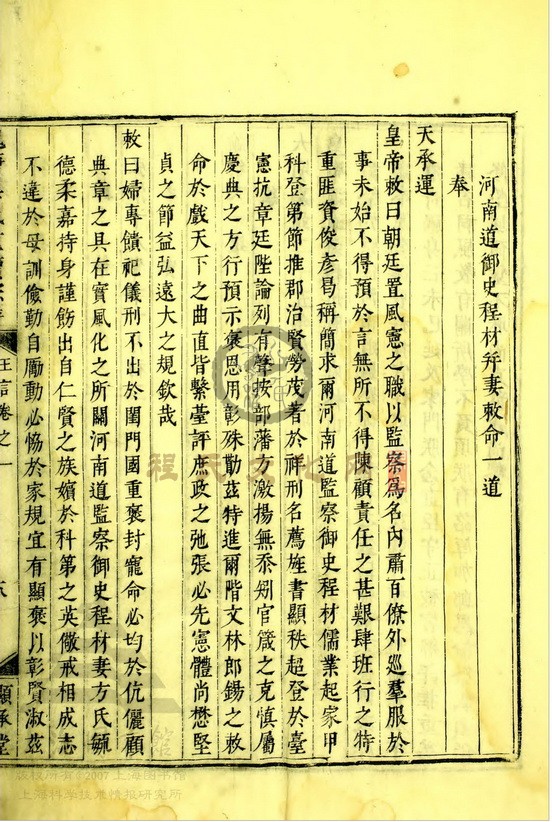 河南道御史程材并妻敕命一道
奉
天承運
皇帝敕曰朝廷置風憲之職以監察爲名內肅百僚外巡羣服於
事未始不得預於言無所不得陳顧責任之甚艱肆班行之特
重匪資俊彦曷稱簡求爾河南道監察御史程材儒業起家甲
科登第節推郡治賢勞茂著於祥刑名薦旌書顯秩超登於臺
憲抗章廷陛論列有聲按部藩方激揚無忝矧官箴之克慎屬
慶典之方行預示褒恩用彰殊勤茲特進爾階文林郎錫之敕
命於戲天下之曲直皆繫臺評庶政之弛張必先憲體尚懋堅
貞之節益弘遠大之規欽哉
敕曰婦專饋祀儀刑不出於閨門國重褒封寵命必均於伉儷顧
典章之具在實風化之所關河南道監察御史程材妻方氏毓
德柔嘉持身謹飭出自仁賢之族嬪於科第之英儆戒相成志
不違於母訓儉勤自勵動必恊於家規宜有顯褒以彰賢淑茲
王言卷之一
顯承堂
程氏文化
版权所有©2007上海图书馆
上海科学技术情报研究所